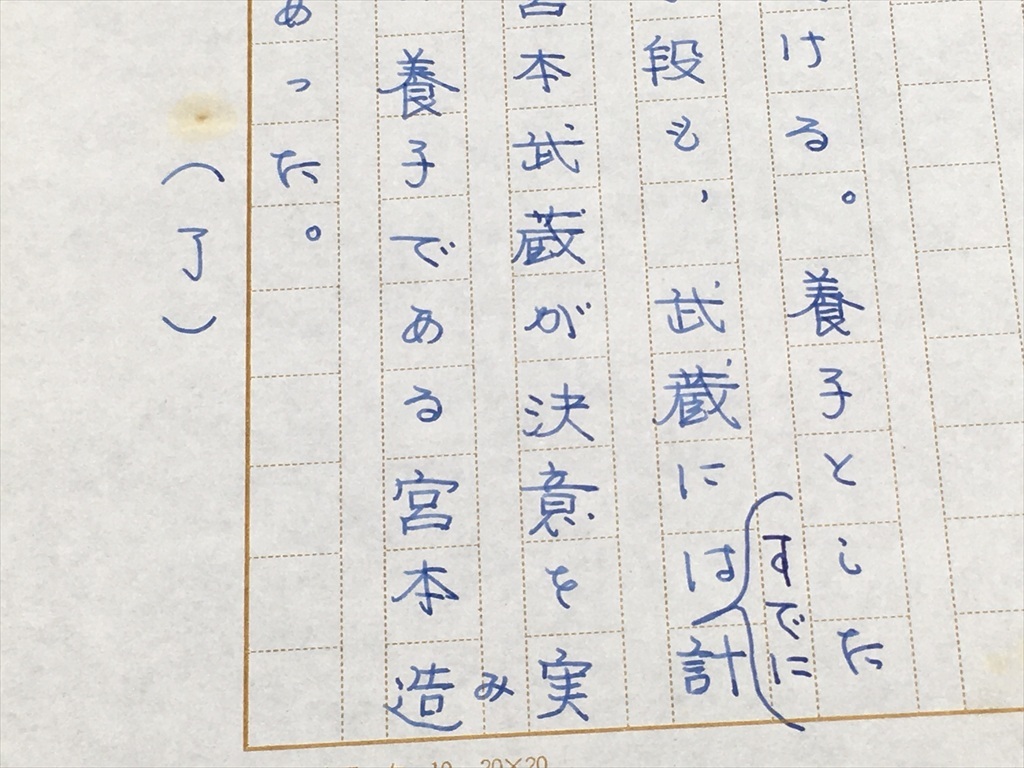 ける。養子とした
すでに
段も、武蔵には計
宮本武蔵が決意を実
み
養子である宮本造
あった。
（了）
20×20